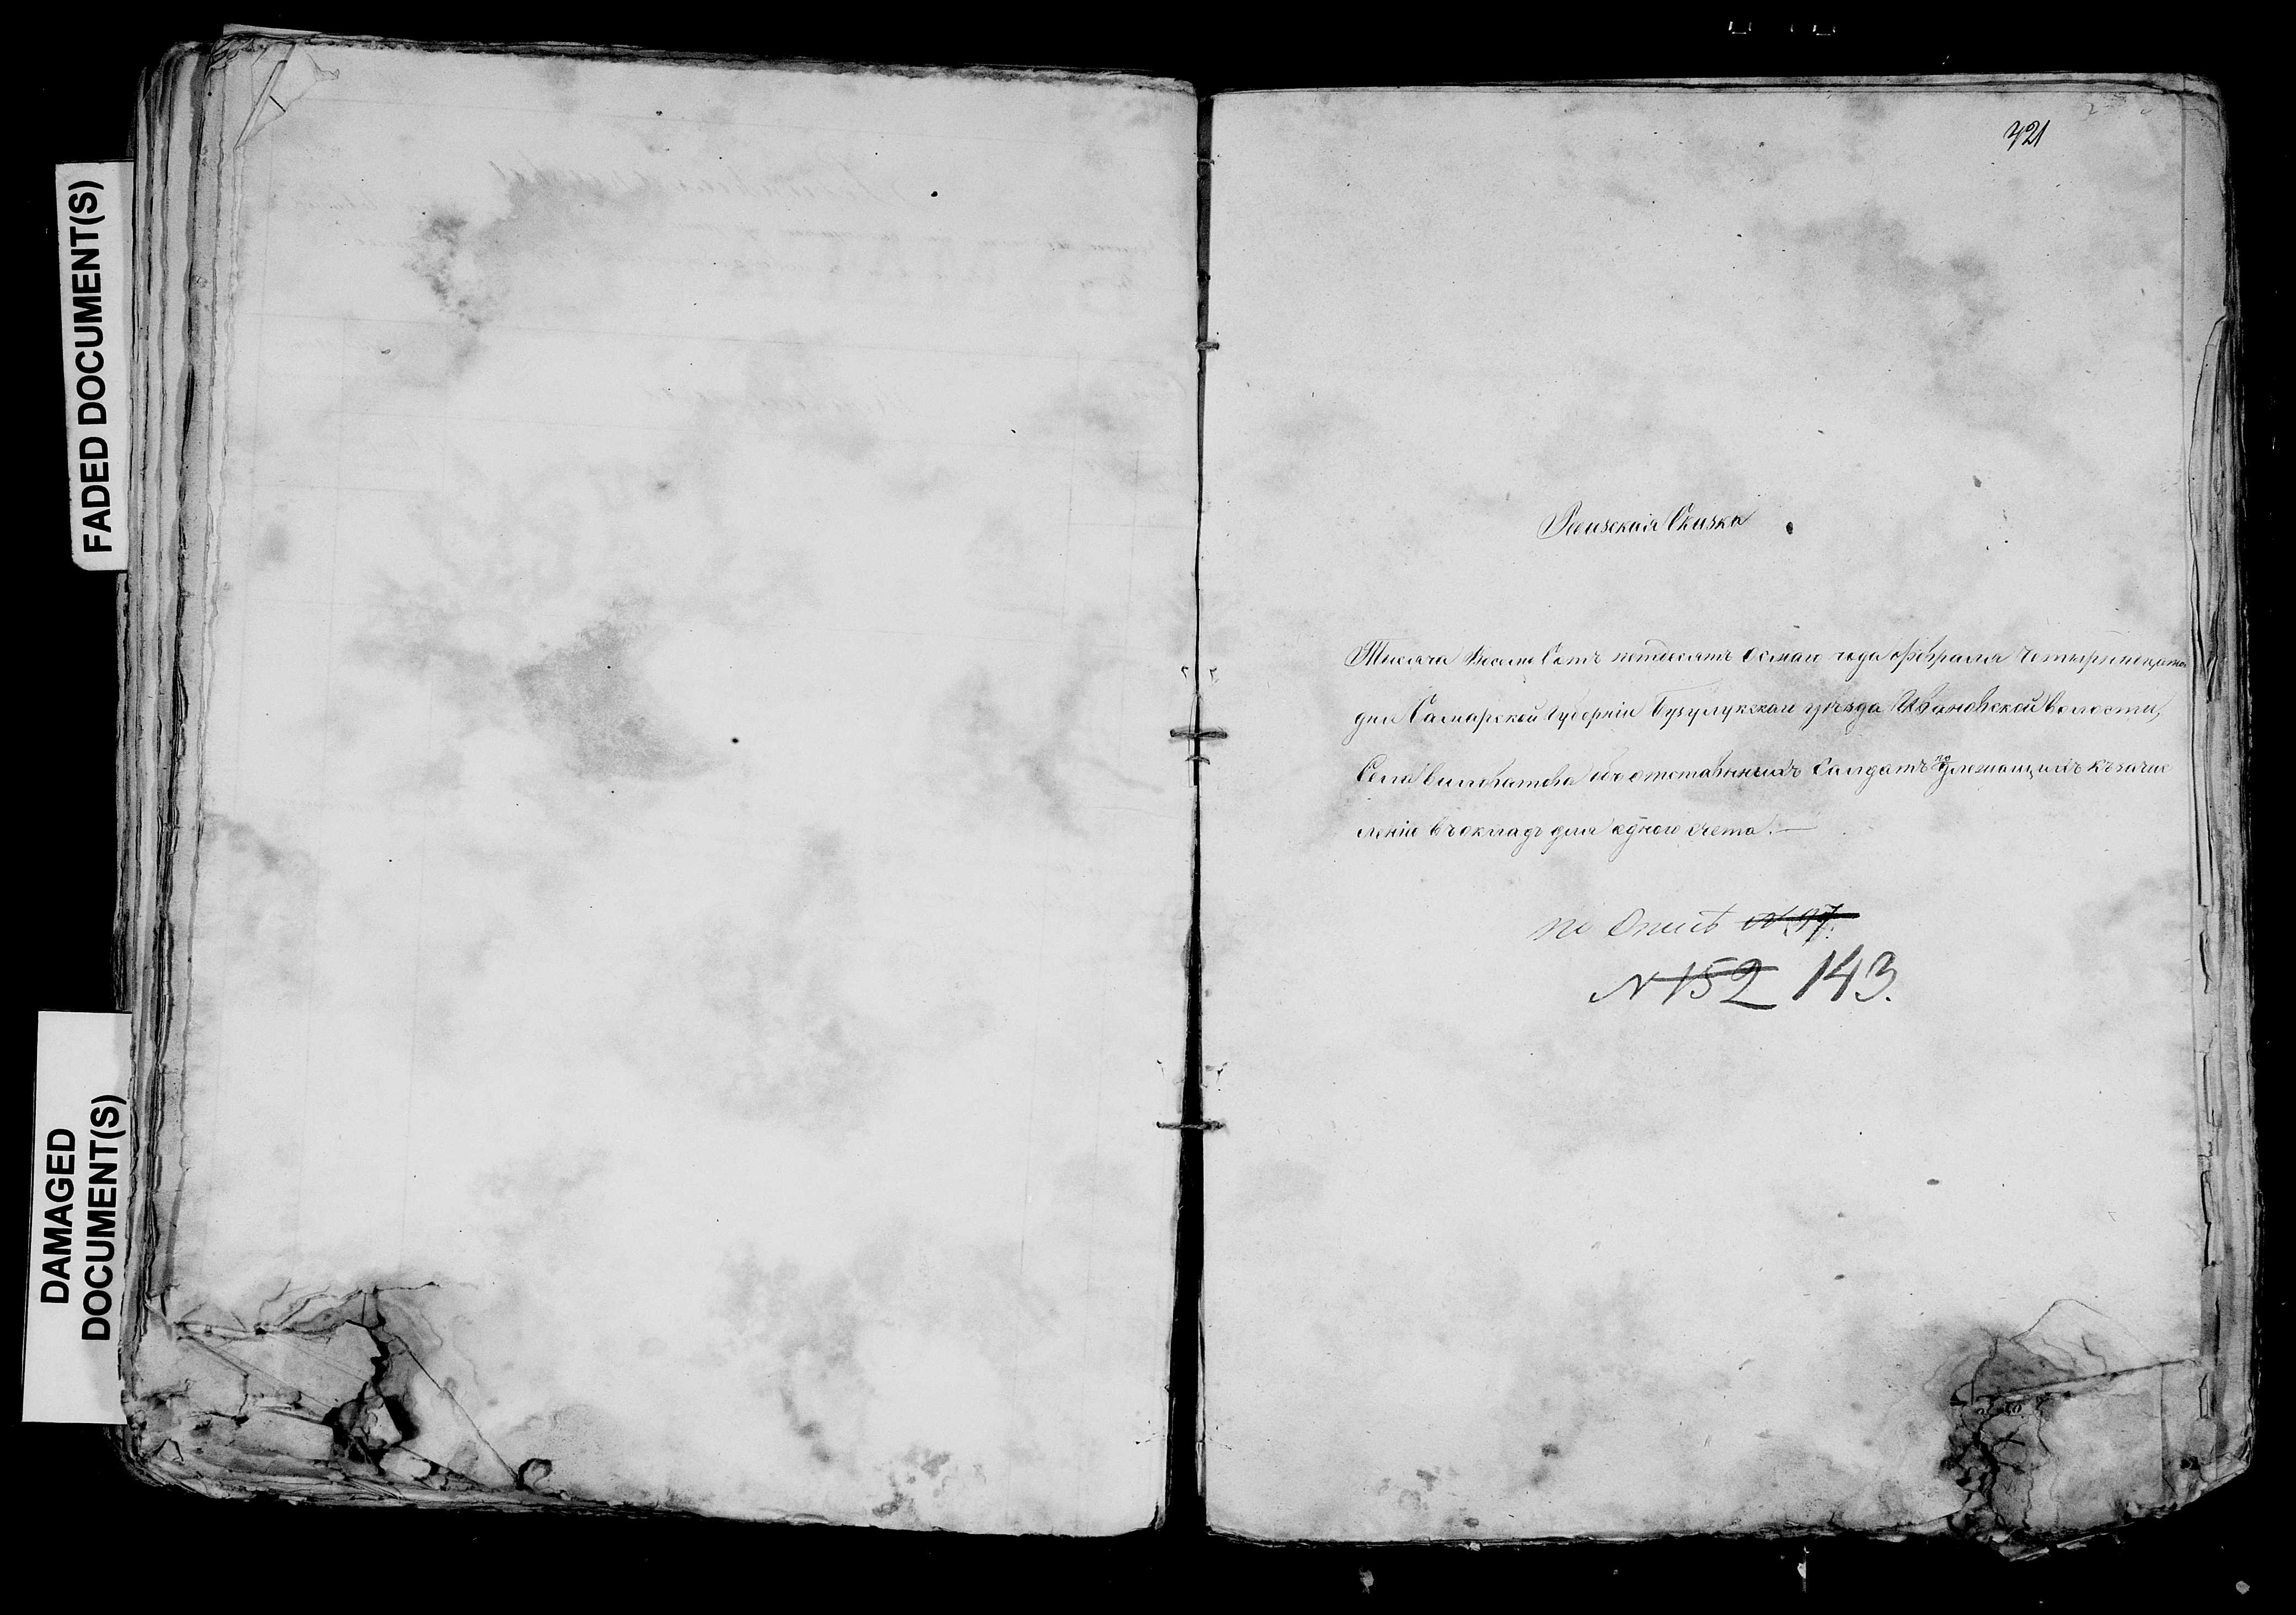 FADED DOCUMENT(S)
DAMAGED
DOCUMENT(S)
421
Ревизская Сказка
Тысяча восемь Сотъ петдесятъ Осмаго года Февраля Четырнадцата
дня Самарской Губерніи Бузулукскаго уѣзда Ивановской волости,
Села объ отставныхъ Салдатъ подлежащихъ къ зачис
ленію въ окладъ для одного счета.—
по Описѣ №97.
N 152 143.